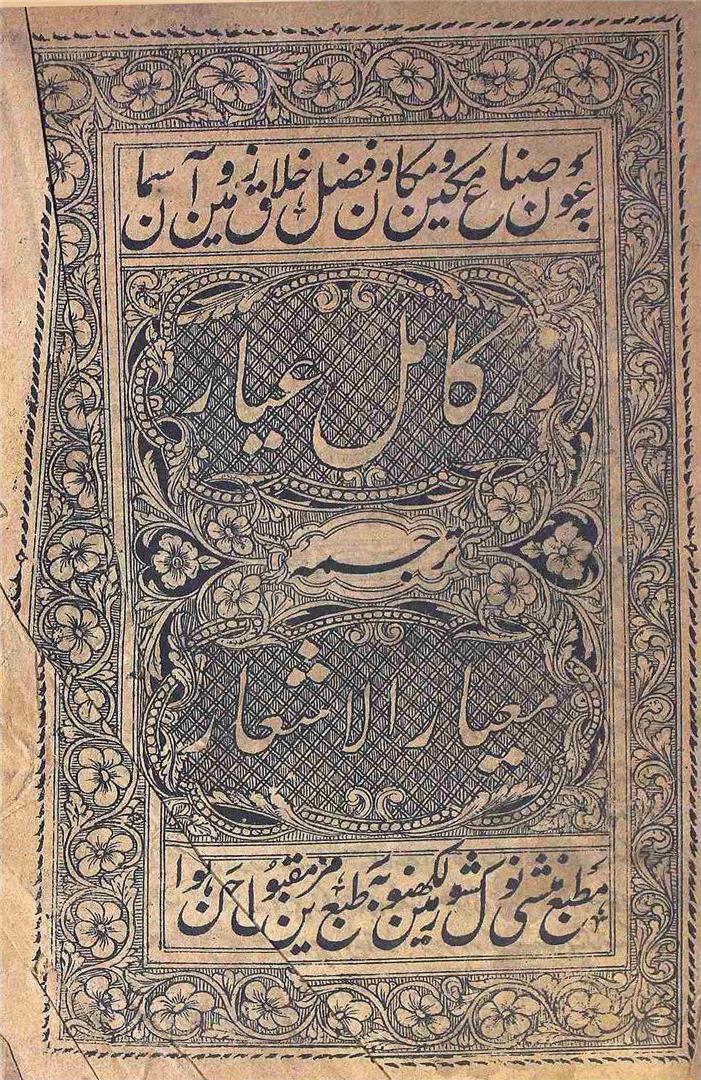 بہ عون صناع مکین و مکان و فضل خلاق زمین و آسمان
زر کامل عیار
ترجمہ
معیار الاشعار
مطبع منشی نولکشور میں لکھنؤ بہ طبع مزین مقبول ہوا